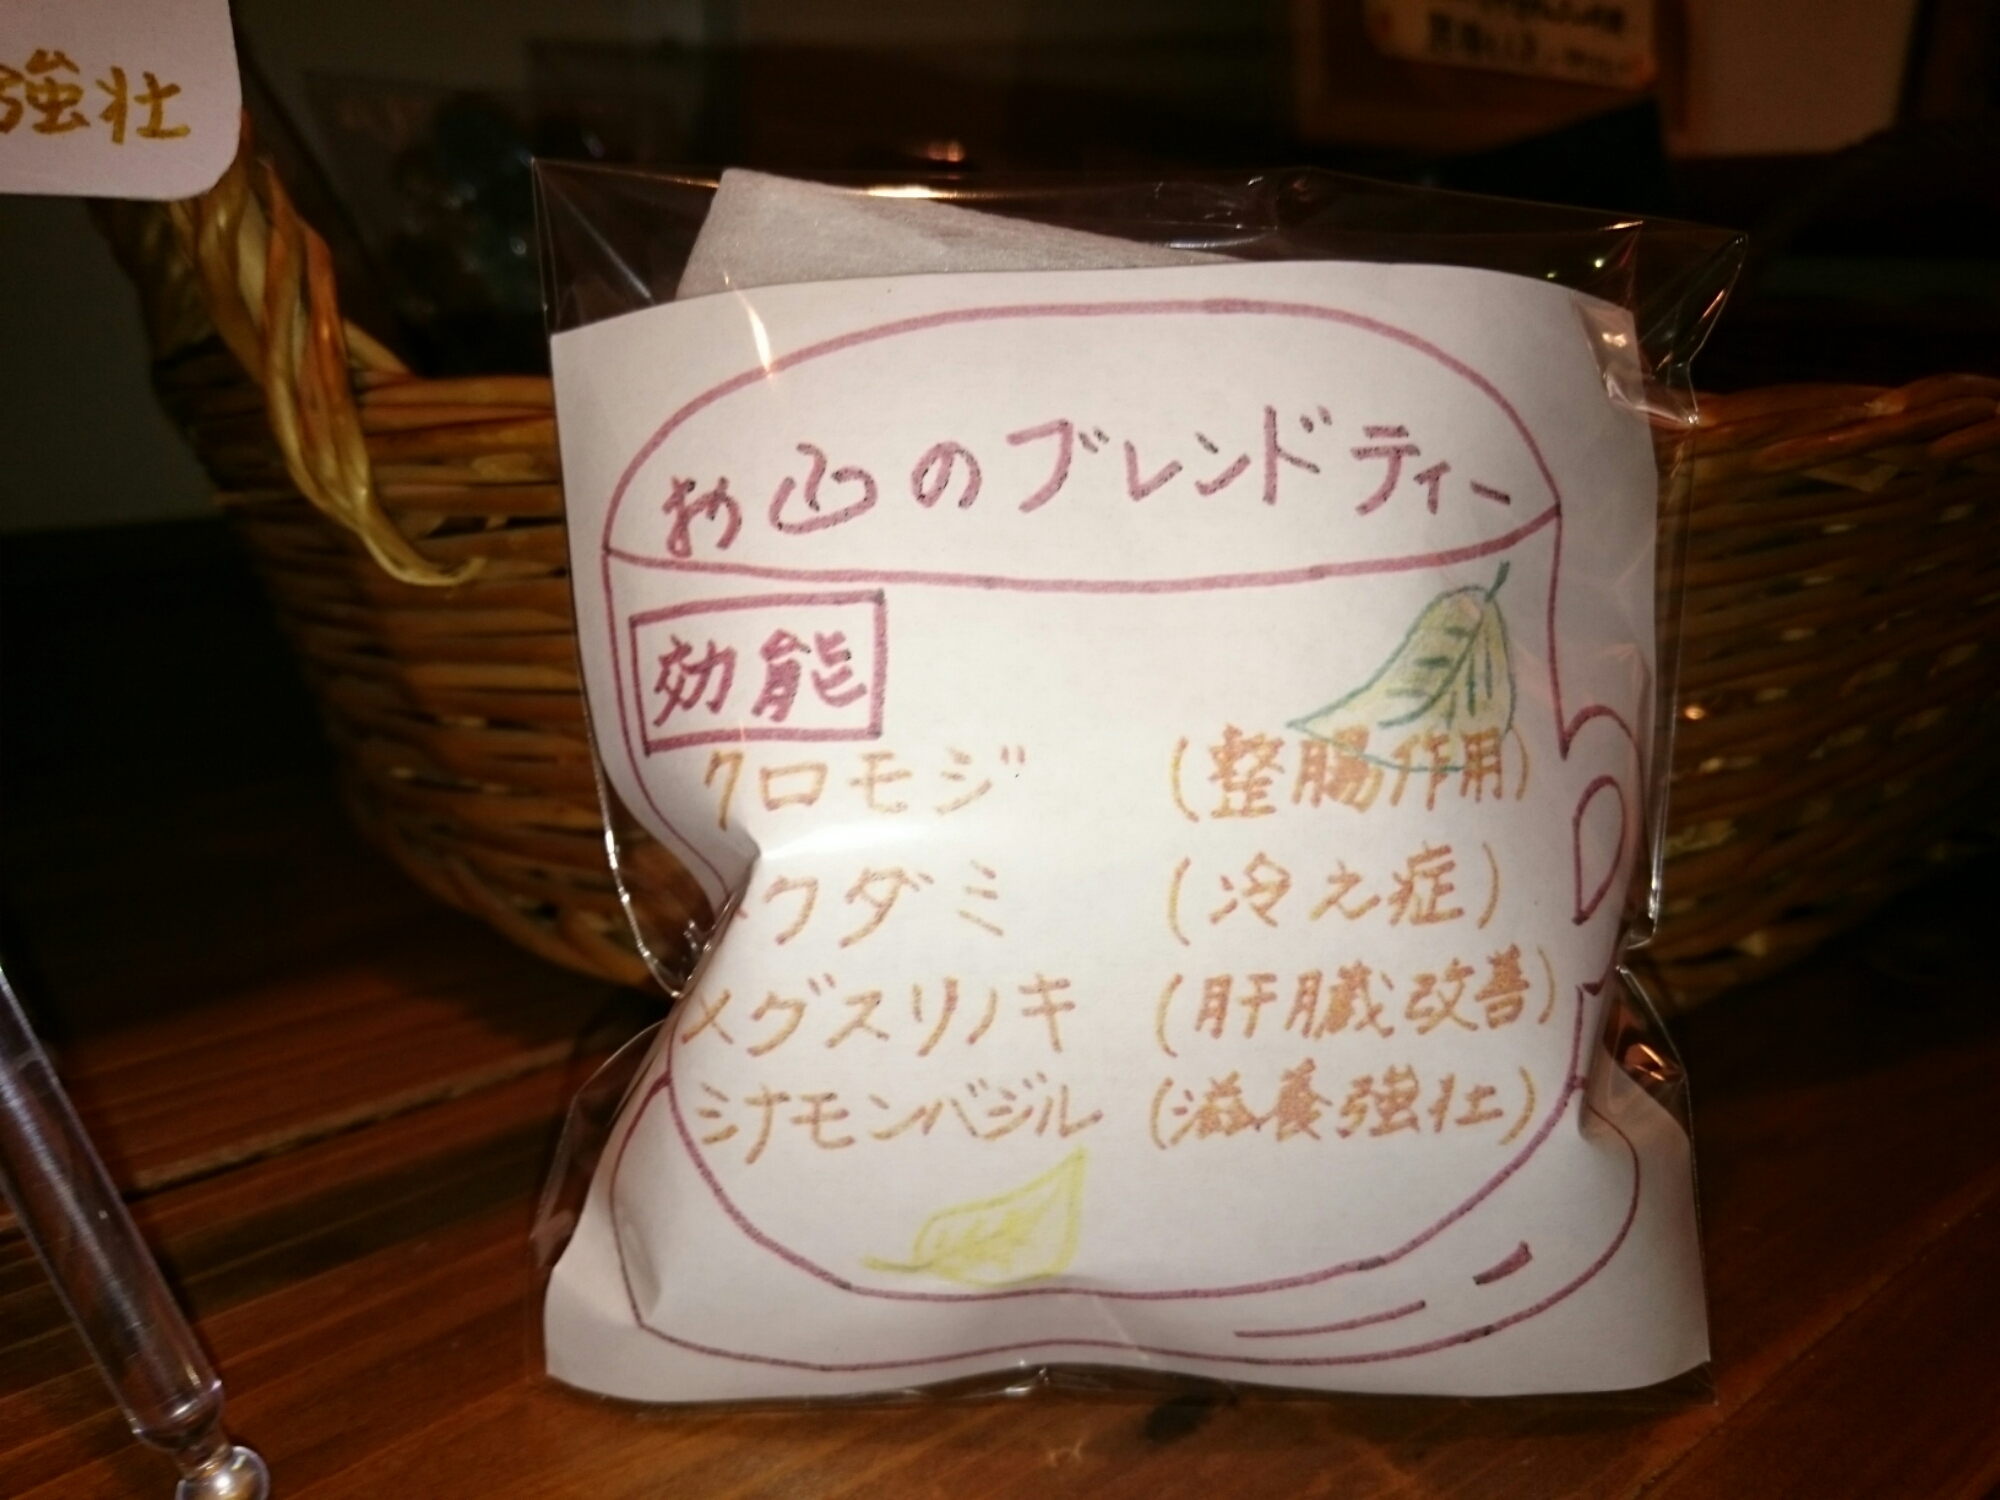 強壮
お山のブレンドティー
効能
クロモジ (整腸作用)
クダミ (冷え症)
メグスリノキ (肝臓改善)
シナモンバジル (滋養強壮)